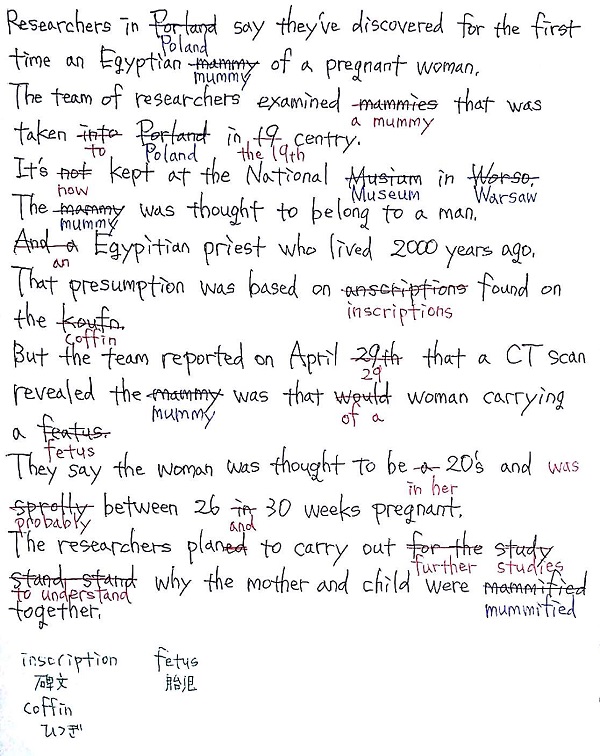 Researchers in Porland say they've discovered for the first
Poland
time an Egyptian mammy of a pregnant woman.
mummy
The team of researchers examined mammies that was
a mummy
taken into Porland in 19 centry.
to Poland the 19th
It's not kept at the National Musium in Worso.
now Museum Warsaw
The mammy was thought to belong to a man.
mummy
And a Egypitian priest who lived 2000 years ago.
an
That presumption was based on anscriptions found on
inscriptions
the koufn.
coffin
But the team reported on April 29th that a CT scan
29
revealed the mammy was that would woman carrying
mummy of a
a featus.
fetus
They say the woman was thought to be a 20's and was
in her
sprotly between 26 in 30 weeks pregnant.
probably and
The researchers planed to carry out for the study
further studies
stand stand why the mother and child were mammified
to understand mummified
together.
inscription fetus
碑文 胎児
coffin
ひつぎ